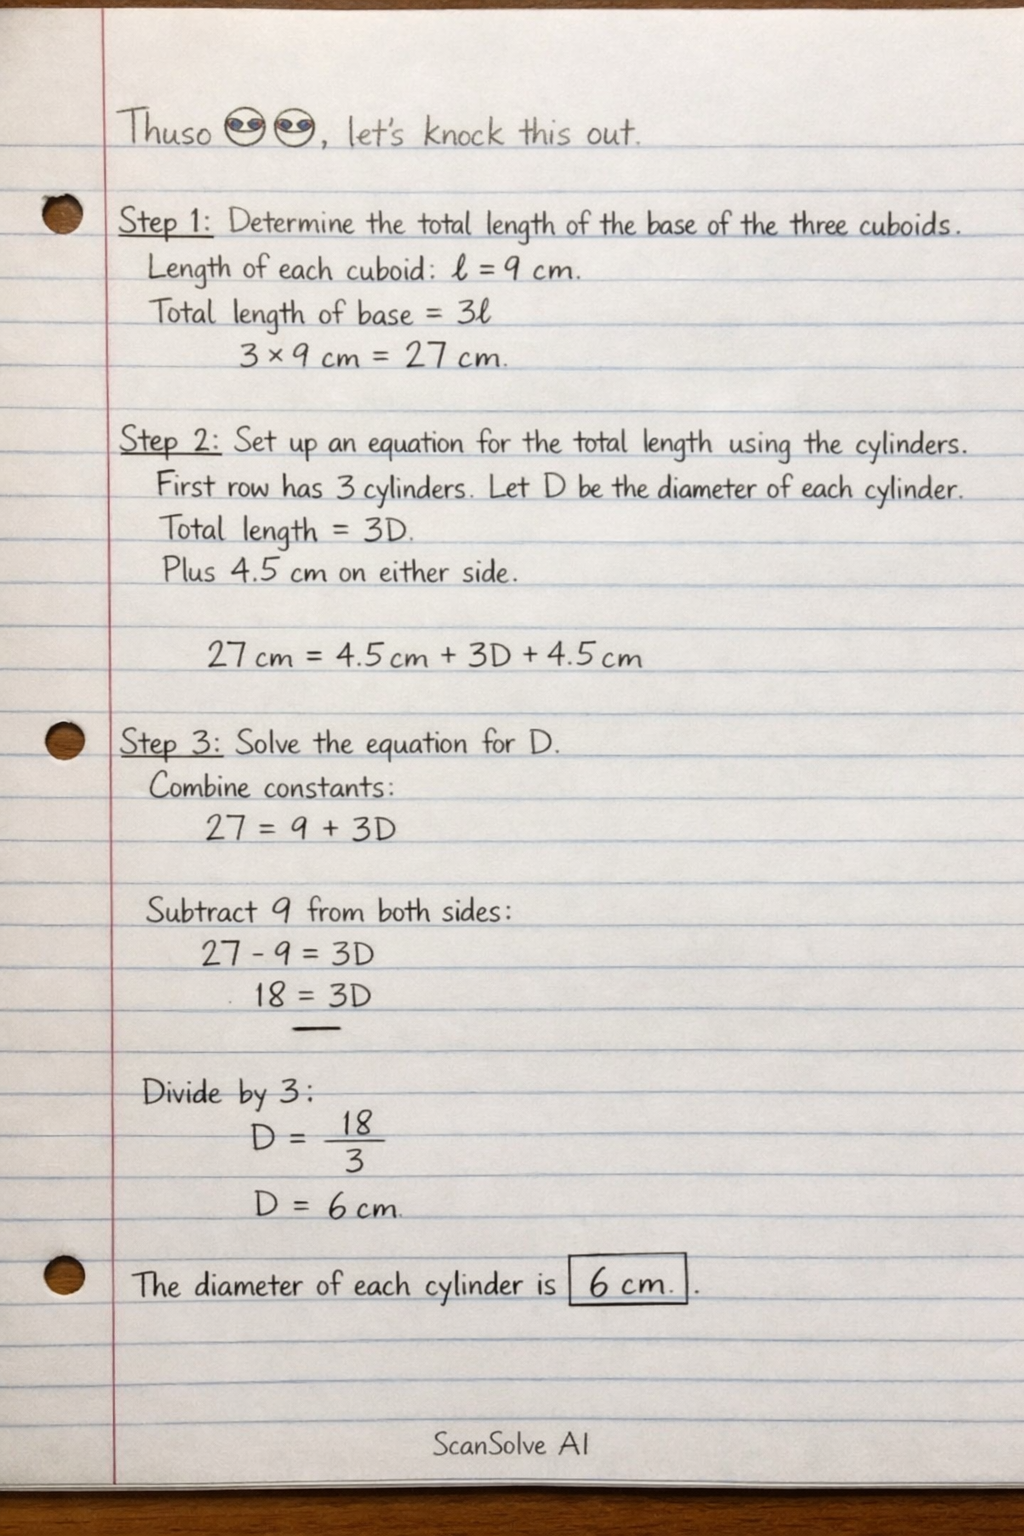 Thuso 😎😎, let's knock this out.
Step 1: Determine the total length of the base of the three cuboids.
Length of each cuboid: ℓ = 9 cm.
Total length of base = 3ℓ
3 × 9 cm = 27 cm.
Step 2: Set up an equation for the total length using the cylinders.
First row has 3 cylinders. Let D be the diameter of each cylinder.
Total length = 3D.
Plus 4.5 cm on either side.
27 cm = 4.5 cm + 3D + 4.5 cm
Step 3: Solve the equation for D.
Combine constants:
27 = 9 + 3D
Subtract 9 from both sides:
27 - 9 = 3D
18 = 3D
Divide by 3:
D = 18/3
D = 6 cm.
The diameter of each cylinder is 6 cm..
ScanSolve AI